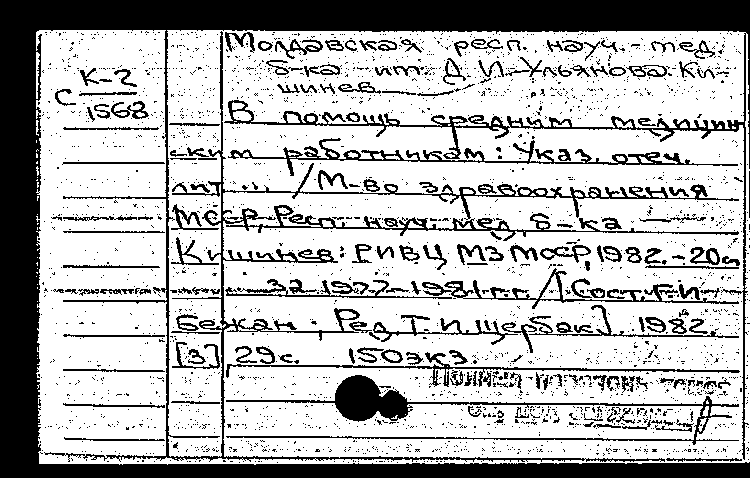 Молдавская респ. науч.-мед.
б-ка им. Д. И. Ульянова. Ки-
шинев
К-2
С 1568
В помощь средним медицин
ским работникам: Указ. отеч.
лит... / М-во здравоохранения
МССР, Респ. науч. мед. б-ка.
Кишинев: РИВЦ МЗ МССР, 1982.-20см
за 1977-1981 г.г. / [Сост. Г. И.
Бежан; Ред. Т. И. Щербак]. 1982.
[3], 29с. 150экз.